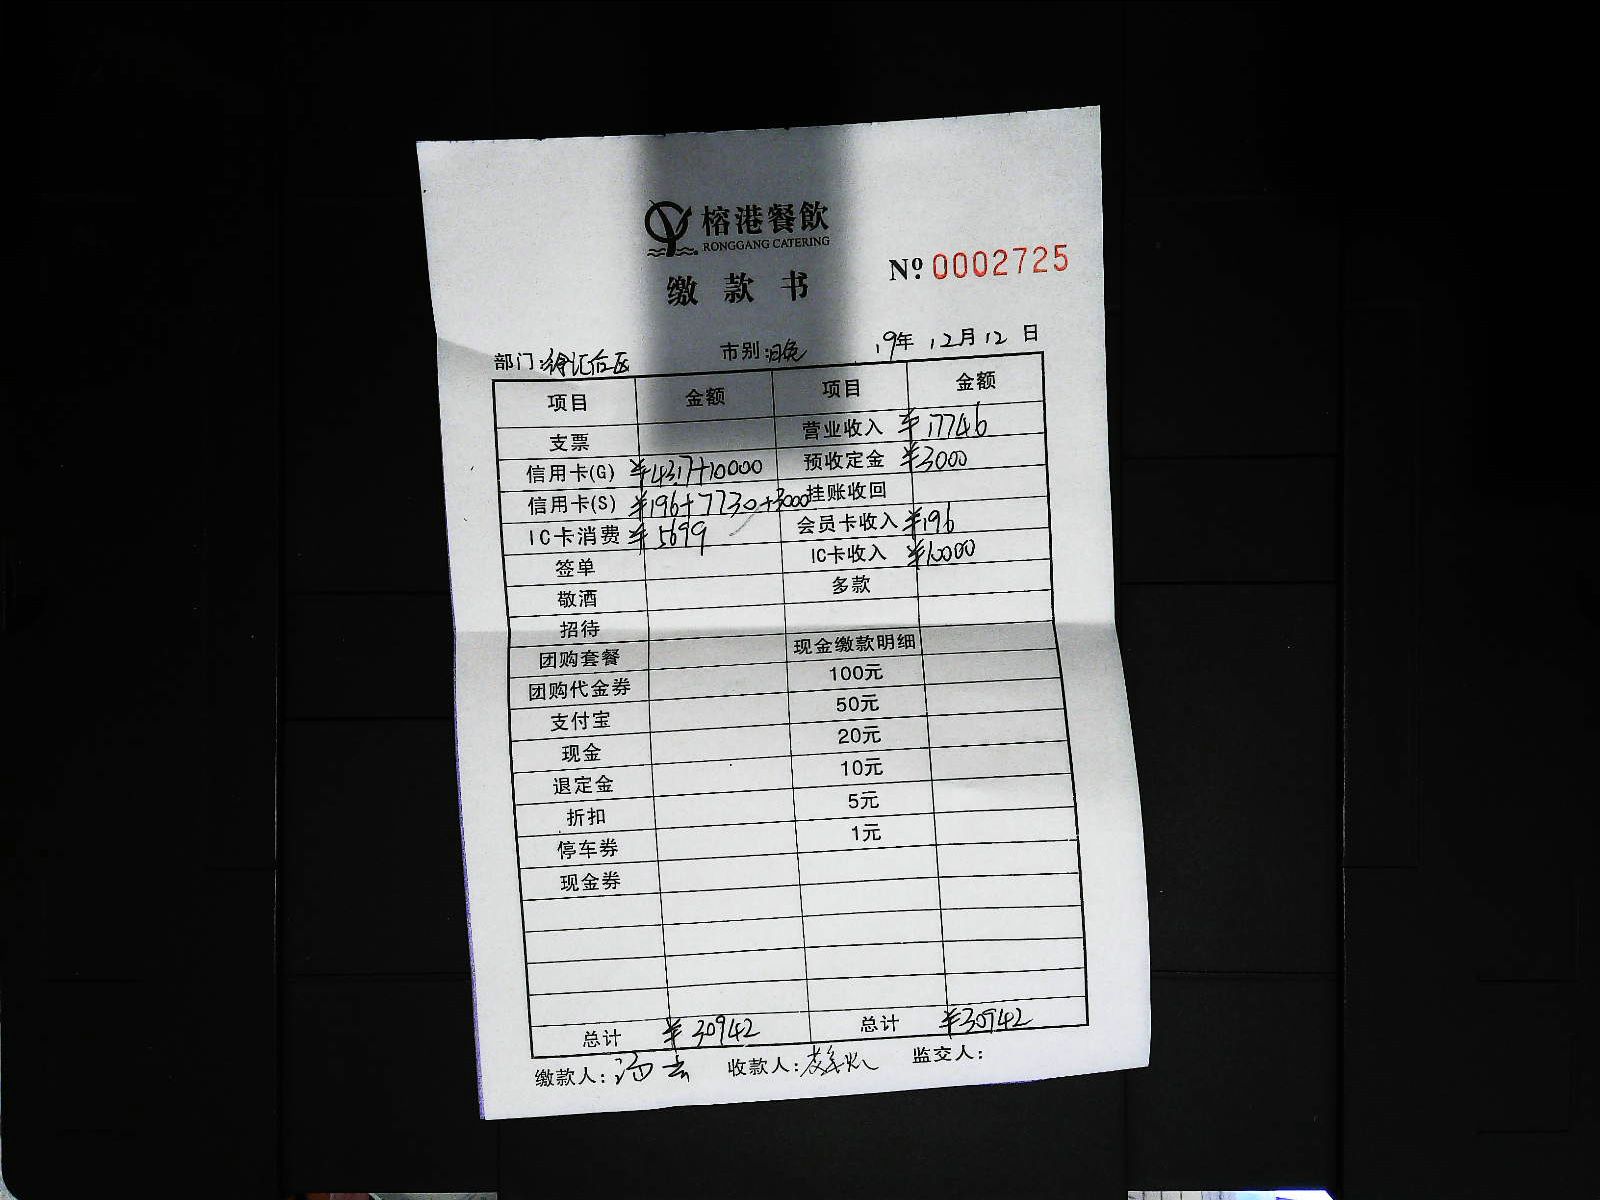 榕港餐飲
RONGGANG CATERING
缴款书
№ 0002725
部门:徐汇后区 市别:晚 19年12月12日
项目 金额 项目 金额
支票 营业收入 ¥17746
信用卡(G) ¥4317+10000 预收定金 ¥3000
信用卡(S) ¥196+7730+3000 挂账收回
IC卡消费 ¥5699 会员卡收入 ¥196
签单 IC卡收入 ¥10000
敬酒 多款
招待
团购套餐 现金缴款明细
团购代金券 100元
支付宝 50元
现金 20元
退定金 10元
折扣 5元
停车券 1元
现金券
总计 ¥30942 总计 ¥30942
缴款人: 收款人: 监交人: